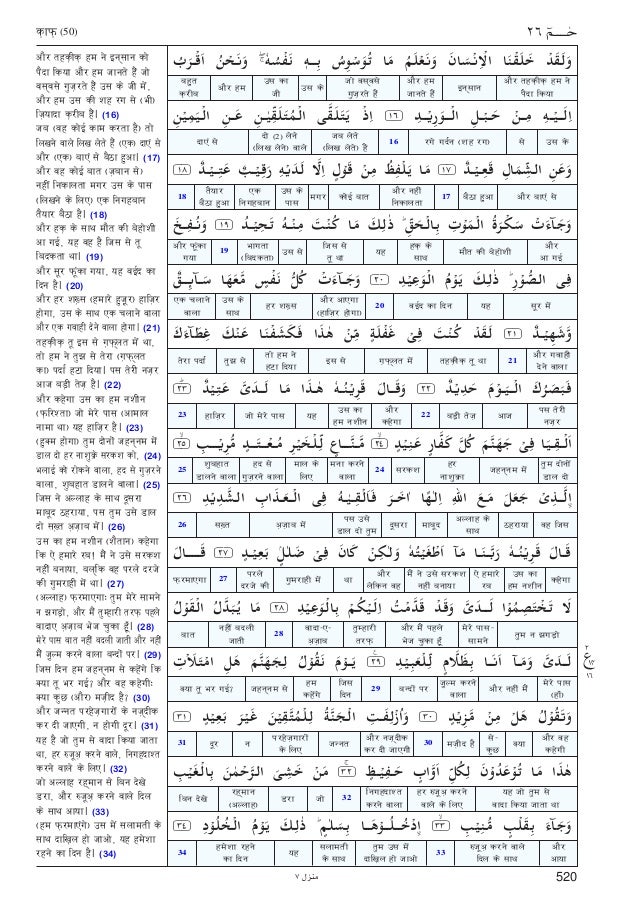 क़ाफ़ (50)
حٰـمٓ ٢٦
और तहक़ीक़ हम ने इन्सान को
पैदा किया और हम जानते हैं जो
वस्वसे गुज़रते हैं उस के जी में,
और हम उस की शह रग से (भी)
ज़ियादा क़रीब हैं। (16)
जब (वह कोई काम करता है) तो
लिखने वाले लिख लेते हैं (एक) दाएं से
और (एक) बाएं से बैठा हुआ। (17)
और वह कोई बात (ज़बान से)
नहीं निकालता मगर उस के पास
(लिखने के लिए) एक निगहबान
तैयार बैठा है। (18)
और हक़ के साथ मौत की बेहोशी
आ गई, यह वह है जिस से तू
बिदकता था। (19)
और सूर फूंका गया, यह वईद का
दिन है। (20)
और हर शख़्स (हमारे हुज़ूर) हाज़िर
होगा, उस के साथ एक चलाने वाला
और एक गवाही देने वाला होगा। (21)
तहक़ीक़ तू इस से ग़फ़्लत में था,
तो हम ने तुझ से तेरा (ग़फ़्लत
का) पर्दा हटा दिया। पस तेरी नज़र
आज बड़ी तेज़ है। (22)
और कहेगा उस का हम नशीन
(फ़रिश्ता) जो मेरे पास (आमाल
नामा था) यह हाज़िर है। (23)
(हुक्म होगा) तुम दोनों जहन्नम में
डाल दो हर नाशुक्रे सरकश को, (24)
भलाई को रोकने वाला, हद से गुज़रने
वाला, शुबहात डालने वाला। (25)
जिस ने अल्लाह के साथ दूसरा
माबूद ठहराया, पस तुम उसे डाल
दो सख़्त अज़ाब में। (26)
उस का हम नशीन (शैतान) कहेगा
कि ऐ हमारे रब! मैं ने उसे सरकश
नहीं बनाया, बल्कि वह परले दरजे
की गुमराही में था। (27)
(अल्लाह) फ़रमाएगाः तुम मेरे सामने
न झगड़ो, और मैं तुम्हारी तरफ़ पहले
वादाए अज़ाब भेज चुका हूँ। (28)
मेरे पास बात नहीं बदली जाती और नहीं
मैं ज़ुल्म करने वाला बन्दों पर। (29)
जिस दिन हम जहन्नम से कहेंगे कि
क्या तू भर गई? और वह कहेगीः
क्या कुछ (और) मज़ीद है? (30)
और जन्नत परहेज़गारों के नज़्दीक
कर दी जाएगी, न होगी दूर। (31)
यह है जो तुम से वादा किया जाता
था, हर रुजूअ़ करने वाले, निगहदाश्त
करने वाले के लिए। (32)
जो अल्लाह रहमान से बिन देखे
डरा, और रुजूअ़ करने वाले दिल
के साथ आया। (33)
(हम फ़रमाएंगे) उस में सलामती के
साथ दाख़िल हो जाओ, यह हमेशा
रहने का दिन है। (34)
وَلَقَدْ خَلَقْنَا الْاِنْسَانَ وَنَعْلَمُ مَا تُوَسْوِسُ بِهٖ نَفْسُهٗ ۚ وَنَحْنُ اَقْرَبُ
और तहक़ीक़ हम ने पैदा किया | इन्सान | और हम जानते हैं | जो वस्वसे गुज़रते हैं | उस के | उस का जी | और हम | बहुत क़रीब
اِلَيْهِ مِنْ حَبْلِ الْوَرِيْدِ ١٦ اِذْ يَتَلَقَّى الْمُتَلَقِّيٰنِ عَنِ الْيَمِيْنِ
उस के | से | रगे गर्दन (शह रग) | 16 | जब लेते (लिख लेते) हैं | दो (2) लेने (लिख लेने) वाले | दाएं से
وَعَنِ الشِّمَالِ قَعِيْدٌ ١٧ مَا يَلْفِظُ مِنْ قَوْلٍ اِلَّا لَدَيْهِ رَقِيْبٌ عَتِيْدٌ ١٨
और बाएं से | बैठा हुआ | 17 | और नहीं निकालता | कोई बात | मगर | उस के पास | एक निगहबान | तैयार बैठा हुआ | 18
وَجَآءَتْ سَكْرَةُ الْمَوْتِ بِالْحَقِّ ؕ ذٰلِكَ مَا كُنْتَ مِنْهُ تَحِيْدُ ١٩ وَنُفِخَ
और आ गई | मौत की बेहोशी | हक़ के साथ | यह | जिस से तू था | उस से | भागता (बिदकता) | 19 | और फूंका गया
فِى الصُّوْرِ ؕ ذٰلِكَ يَوْمُ الْوَعِيْدِ ٢٠ وَجَآءَتْ كُلُّ نَفْسٍ مَّعَهَا سَآىِٕقٌ
सूर में | यह | वईद का दिन | 20 | और आएगा (हाज़िर होगा) | हर शख़्स | उस के साथ | एक चलाने वाला
وَّشَهِيْدٌ ٢١ لَقَدْ كُنْتَ فِىْ غَفْلَةٍ مِّنْ هٰذَا فَكَشَفْنَا عَنْكَ غِطَآءَكَ
और गवाही देने वाला | 21 | तहक़ीक़ तू था | ग़फ़्लत में | इस से | तो हम ने हटा दिया | तुझ से | तेरा पर्दा
فَبَصَرُكَ الْيَوْمَ حَدِيْدٌ ٢٢ وَقَالَ قَرِيْنُهٗ هٰذَا مَا لَدَىَّ عَتِيْدٌ ٢٣
पस तेरी नज़र | आज | बड़ी तेज़ | 22 | और कहेगा | उस का हम नशीन | यह | जो मेरे पास | हाज़िर | 23
اَلْقِيَا فِىْ جَهَنَّمَ كُلَّ كَفَّارٍ عَنِيْدٍ ٢٤ مَّنَّاعٍ لِّلْخَيْرِ مُعْتَدٍ مُّرِيْبٍ ٢٥
तुम दोनों डाल दो | जहन्नम में | हर नाशुक्रा | सरकश | 24 | मना करने वाला | माल के लिए | हद से गुज़रने वाला | शुबहात डालने वाला | 25
الَّذِىْ جَعَلَ مَعَ اللّٰهِ اِلٰهًا اٰخَرَ فَاَلْقِيٰهُ فِى الْعَذَابِ الشَّدِيْدِ ٢٦
वह जिस | ठहराया | अल्लाह के साथ | माबूद | दूसरा | पस उसे डाल दो तुम | अज़ाब में | सख़्त | 26
قَالَ قَرِيْنُهٗ رَبَّنَا مَآ اَطْغَيْتُهٗ وَلٰكِنْ كَانَ فِىْ ضَلٰلٍۢ بَعِيْدٍ ٢٧ قَالَ
कहेगा | उस का हम नशीन | ऐ हमारे रब | मैं ने उसे सरकश नहीं बनाया | और लेकिन वह | था | गुमराही में | परले दरजे की | 27 | फ़रमाएगा
لَا تَخْتَصِمُوْا لَدَىَّ وَقَدْ قَدَّمْتُ اِلَيْكُمْ بِالْوَعِيْدِ ٢٨ مَا يُبَدَّلُ الْقَوْلُ
तुम न झगड़ो | मेरे पास-सामने | और मैं पहले भेज चुका हूँ | तुम्हारी तरफ़ | वादा-ए-अज़ाब | 28 | नहीं बदली जाती | बात
لَدَىَّ وَمَآ اَنَا بِظَلَّامٍ لِّلْعَبِيْدِ ٢٩ يَوْمَ نَقُوْلُ لِجَهَنَّمَ هَلِ امْتَلَاْتِ
मेरे पास (हाँ) | और नहीं मैं | ज़ुल्म करने वाला | बन्दों पर | 29 | जिस दिन | हम कहेंगे | जहन्नम से | क्या तू भर गई?
وَتَقُوْلُ هَلْ مِنْ مَّزِيْدٍ ٣٠ وَاُزْلِفَتِ الْجَنَّةُ لِلْمُتَّقِيْنَ غَيْرَ بَعِيْدٍ ٣١
और वह कहेगी | क्या | से-कुछ | मज़ीद है | 30 | और नज़्दीक कर दी जाएगी | जन्नत | परहेज़गारों के लिए | न | दूर | 31
هٰذَا مَا تُوْعَدُوْنَ لِكُلِّ اَوَّابٍ حَفِيْظٍ ٣٢ مَنْ خَشِىَ الرَّحْمٰنَ بِالْغَيْبِ
यह जो तुम से वादा किया जाता था | हर रुजूअ़ करने वाले के लिए | निगहदाश्त करने वाला | 32 | जो | डरा | रहमान (अल्लाह) | बिन देखे
وَجَآءَ بِقَلْبٍ مُّنِيْبٍ ٣٣ اۨدْخُلُوْهَا بِسَلٰمٍ ؕ ذٰلِكَ يَوْمُ الْخُلُوْدِ ٣٤
और आया | रुजूअ़ करने वाले दिल के साथ | 33 | तुम उस में दाख़िल हो जाओ | सलामती के साथ | यह | हमेशा रहने का दिन | 34
٢
ع
١٦
منزل ٧
520